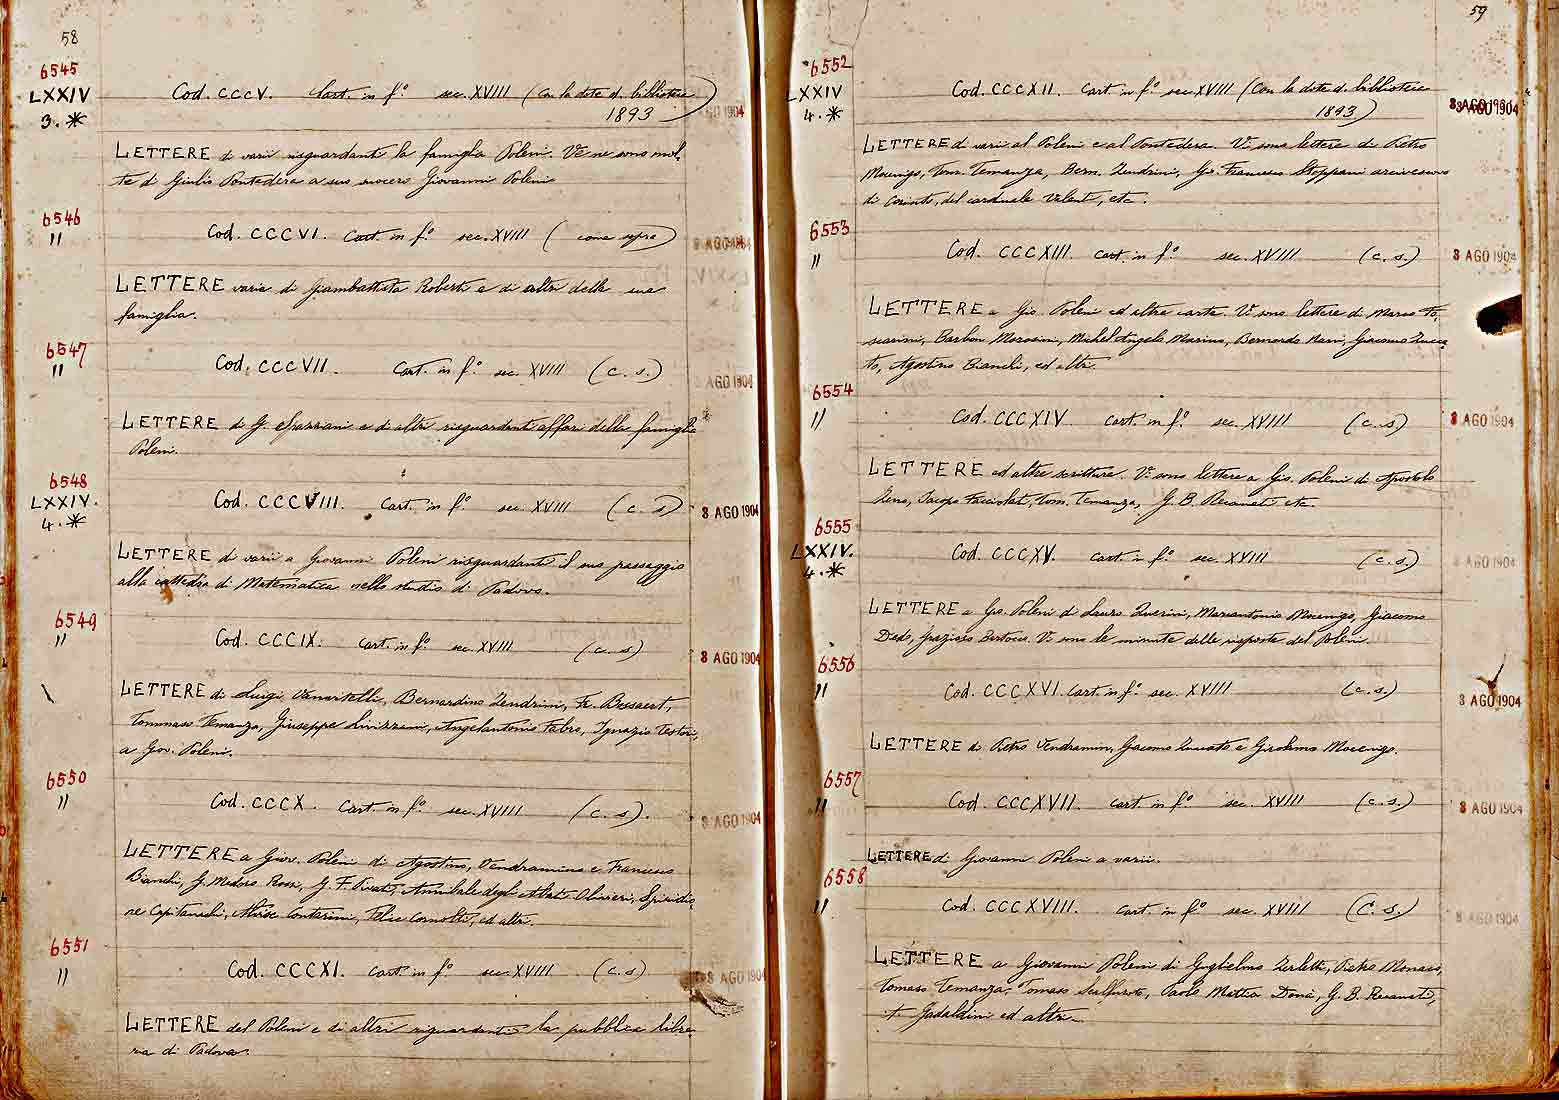 58
6545
LXXIV
3. *
Cod. CCCV. Cart. in fº sec. XVIII (Con la dote d. biblioteca
1893)
AGO 1904
LETTERE di varii risguardanti la famiglia Poleni. Ve ne sono mol-
te di Giulio Pontedera a suo suocero Giovanni Poleni
6546
"
Cod. CCCVI. Cart. in fº. sec. XVIII (come sopra)
8 AGO 1904
LETTERE varie di Giambattista Roberti e di altri della sua
famiglia.
6547
"
Cod. CCCVII. Cart. in fº. sec. XVIII (c. s.)
AGO 1904
LETTERE di G. e di altri risguardanti affari della famiglia
Poleni.
6548
LXXIV.
4. *
Cod. CCCVIII. Cart. in fº sec. XVIII (c. s)
8 AGO 1904
LETTERE di varii a Giovanni Poleni risguardanti il suo passaggio
alla cattedra di Matematica nello studio di Padova.
6549
"
Cod. CCCIX. Cart. in fº. sec. XVIII (c. s)
8 AGO 1904
LETTERE di Luigi Vanvitelli, Bernardino Zendrini, Fr. Bessaert,
Tommaso Temanza, Giuseppe Angelantonio Fabro, Ignazio Testori,
a Giov. Poleni.
6550
"
Cod. CCCX. Cart. in fº sec. XVIII (c. s).
8 AGO 1904
LETTERE a Giov. Poleni di Agostino, Vendramino e Francesco
Bianchi, G. Medoro Rossi, G. F. Pivati, Annibale degli Abati Olivieri, Spiridio-
ne Capitanachi, Alvise Contarini, Felice ed altri.
6551
"
Cod. CCCXI. Cart. in fº sec. XVIII (c. s)
8 AGO 1904
LETTERE del Poleni e di altri riguardanti la pubblica libre-
ria di Padova.
59
6552
LXXIV
4. *
Cod. CCCXII. Cart. in fº sec. XVIII (Con la dote d. biblioteca
1893)
8 AGO 1904
LETTERE di varii al Poleni e al Pontedera. Vi sono lettere di Pietro
Mocenigo, Tom. Temanza, Bern. Zendrini, Gio. Francesco Stoppani arcivescovo
di Corinto, del cardinale Valenti, etc.
6553
"
Cod. CCCXIII. Cart. in fº. sec. XVIII (c. s.)
8 AGO 1904
LETTERE a Gio. Poleni ed altre carte. Vi sono lettere di Marco Fo-
scarini, Barbon Morosini, Michel Angelo Marino, Bernardo Nani, Giacomo Zucca-
to, Agostino Bianchi, ed altri.
6554
"
Cod. CCCXIV. Cart. in fº. sec. XVIII (c. s)
8 AGO 1904
LETTERE ed altre scritture. Vi sono lettere a Gio. Poleni di Apostolo
Zeno, Jacopo Facciolati, Tom. Temanza, G. B. Recanati etc.
6555
LXXIV.
4. *
Cod. CCCXV. Cart. in fº. sec. XVIII (c. s.)
8 AGO 1904
LETTERE a Gio. Poleni di Lauro Querini, Marcantonio Mocenigo, Giacomo
Dedo, Graziosi Vi sono le minute delle risposte del Poleni.
6556
"
Cod. CCCXVI. Cart. in fº. sec. XVIII (c. s.)
8 AGO 1904
LETTERE di Pietro Vendramin, Giacomo Zuccato e Girolamo Mocenigo.
6557
"
Cod. CCCXVII. Cart. in fº sec. XVIII (c. s.)
8 AGO 1904
LETTERE di Giovanni Poleni a varii.
6558
"
Cod. CCCXVIII. Cart. in fº sec. XVIII (C. s.)
8 AGO 1904
LETTERE a Giovanni Poleni di Guglielmo Zerletti, Pietro Monaco,
Tomaso Temanza, Tomaso Scalfurotto, Paolo Mattia Doria, G. B. Recanati,
Gadaldini ed altri.